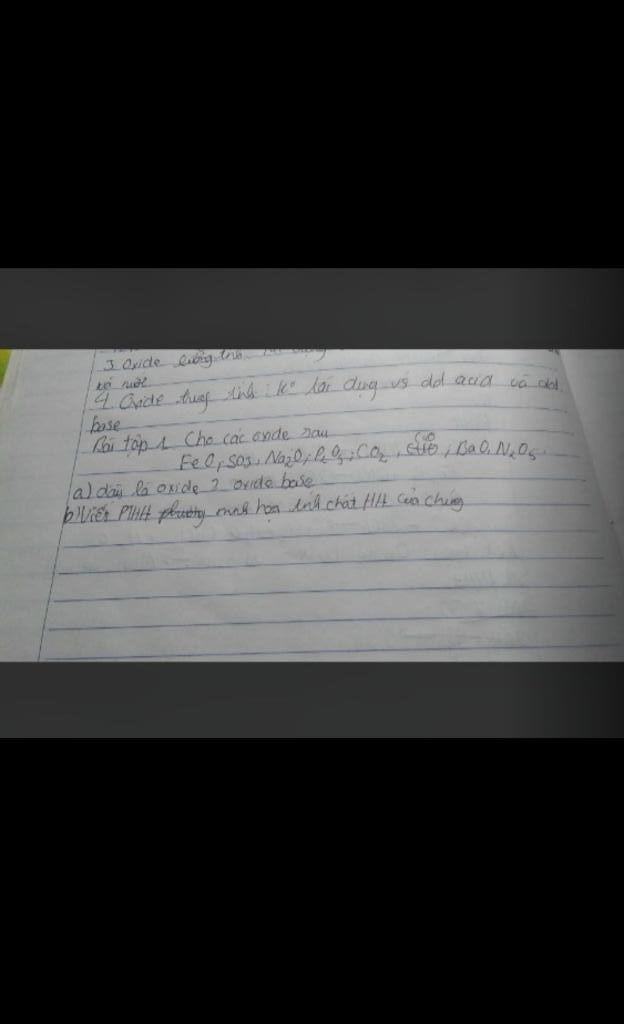 3. Oxide lưỡng tính
và nước
4. Oxide trung tính : ko tác dụng vs dd acid và dd
base
Bài tập 1 Cho các oxide sau
FeO, SO3, Na2O, P2O5, CO2, CuO, BaO, N2O5.
a) đâu là oxide ? oxide base
b) Viết PTHH minh họa tính chất HH của chúng